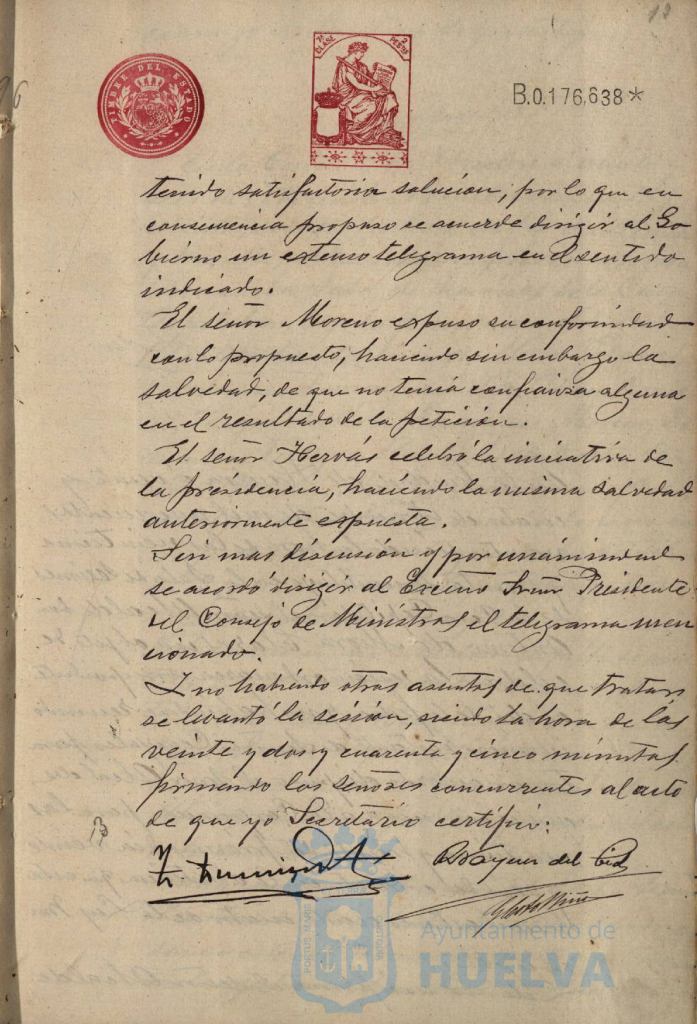 18
TIMBRE DEL ESTADO
7ª CLASE
2 PESETAS
B.0.176,638*
tenido satisfactoria solucion; por lo que en
consecuencia propuso se acuerde dirigir al Go
bierno un extenso telegrama en el sentido
indicado.
El señor Moreno expuso su conformidad
con lo propuesto, haciendo sin embargo la
salvedad, de que no tenía confianza alguna
en el resultado de la petición.
El señor Hervás celebró la iniciativa de
la presidencia, haciendo la misma salvedad
anteriormente expuesta.
Sin mas discusión y por unanimidad
se acordó dirigir al Excmo Señor Presidente
del Consejo de Ministros el telegrama men
cionado.
Y no habiendo otros asuntos de que tratar
se levantó la sesión, siendo la hora de las
veinte y dos y cuarenta y cinco minutos
firmando los señores concurrentes al acto
de que yo Secretário certifico:
del Cid
PORTUS MARIS
CUSTODIA
Ayuntamiento de
HUELVA